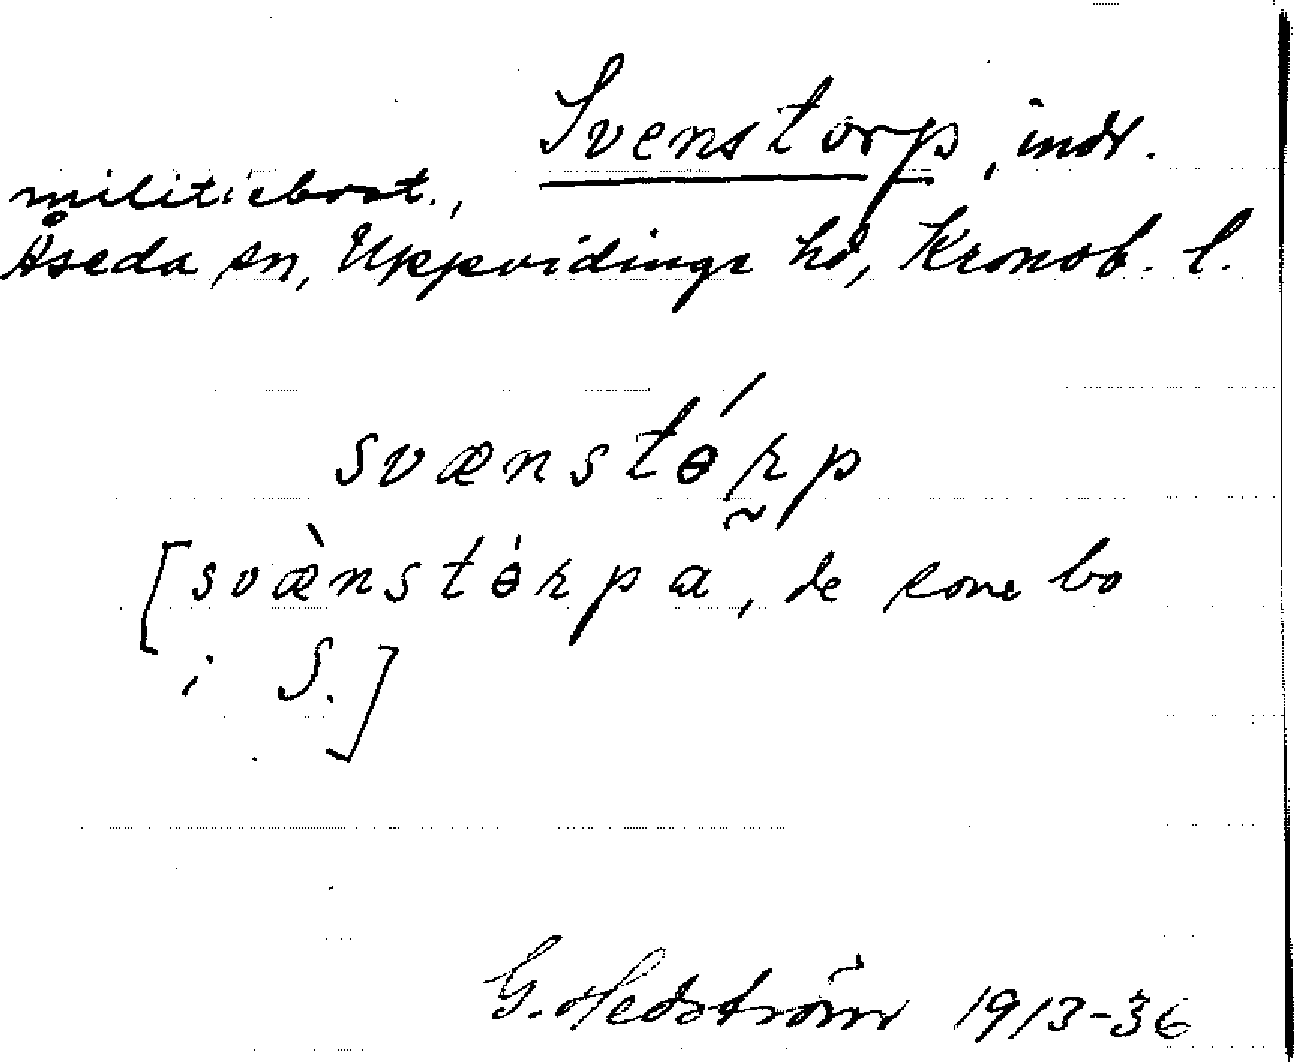 Svenstorp, indr.
militiebost.,
Åseda sn, Uppvidinge hd, Kronob. l.
svænstɵ́rp
[svæ̀nstɵrpa, de som bo
i S.]
G. Hedström 1913-36